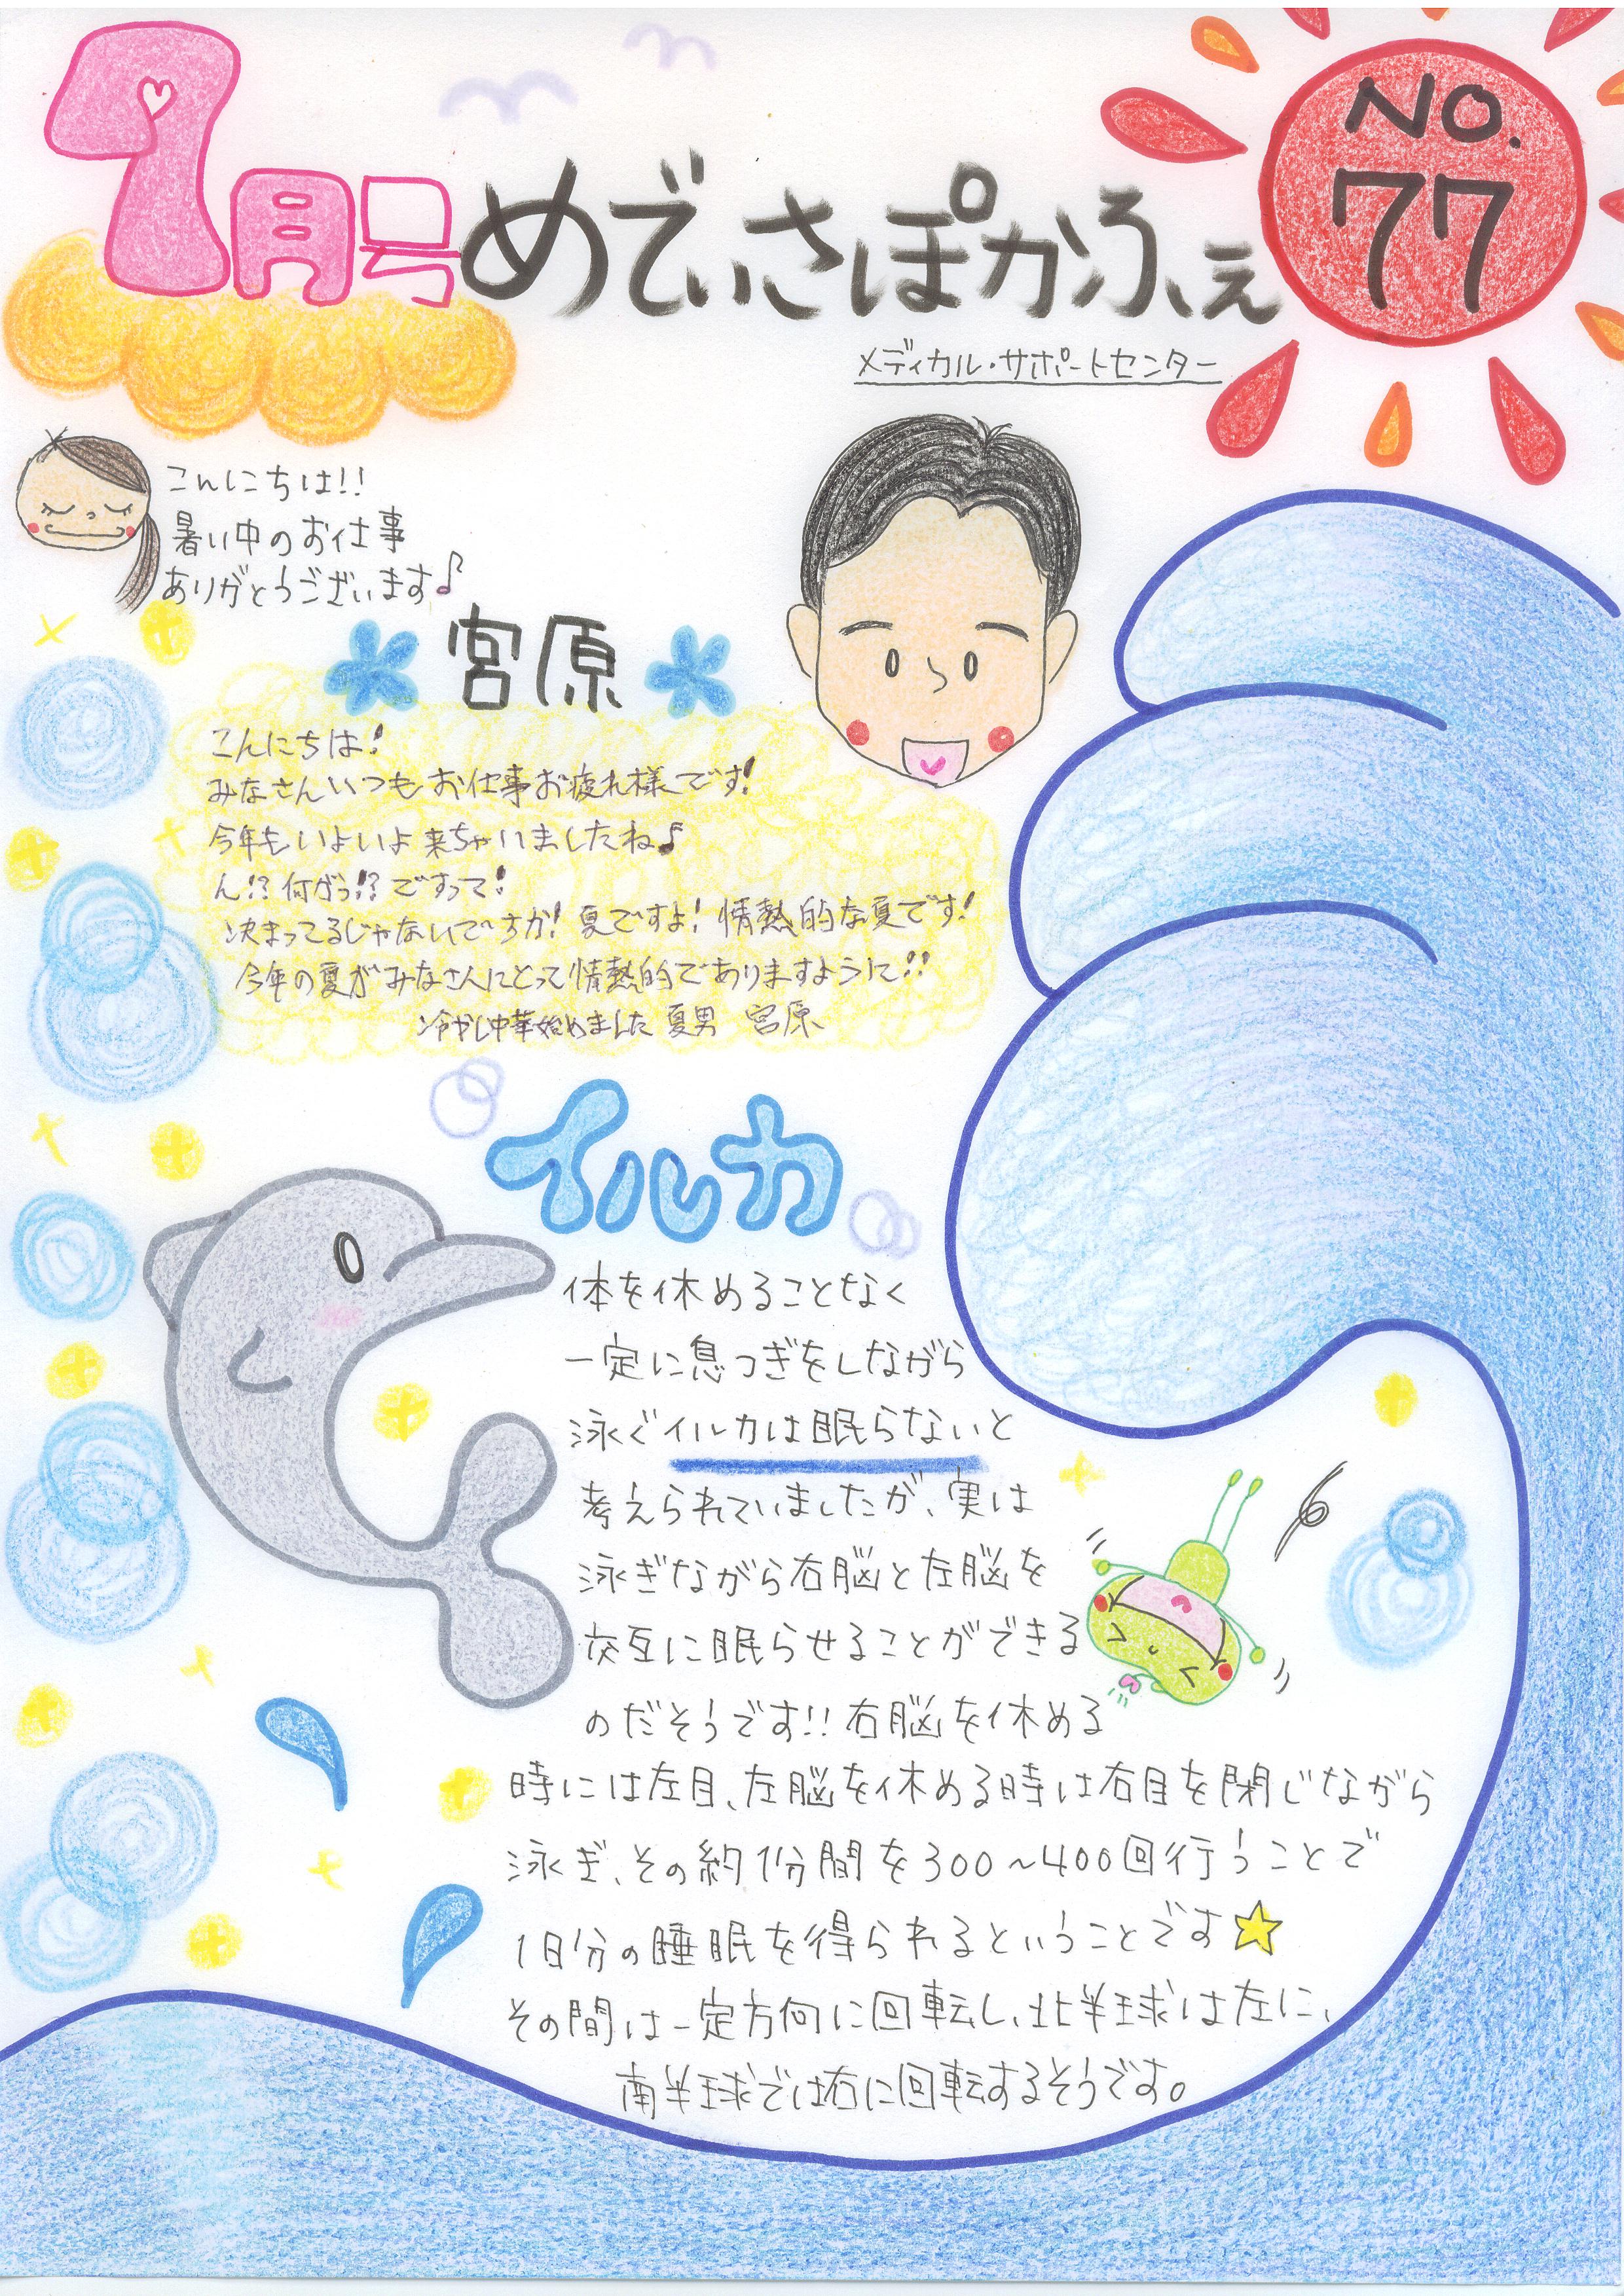 7月号
めでぃさぽかふぇ
NO.
77
メディカル・サポートセンター
こんにちは!!
暑い中のお仕事
ありがとうございます♪
宮原
こんにちは!
みなさんいつもお仕事お疲れ様です!
今年もいよいよ来ちゃいましたね♪
ん!?何がっ!?ですって!
決まってるじゃないですか!夏ですよ!情熱的な夏です!
今年の夏がみなさんにとって情熱的でありますように!!
冷やし中華始めました 夏男 宮原
イルカ
体を休めることなく
一定に息つぎをしながら
泳ぐイルカは眠らないと
考えられていましたが、実は
泳ぎながら右脳と左脳を
交互に眠らせることができる
のだそうです!!右脳を休める
時には左目、左脳を休める時は右目を閉じながら
泳ぎ、その約1分間を300~400回行うことで
1日分の睡眠を得られるということです☆
その間は一定方向に回転し、北半球は左に、
南半球では右に回転するそうです。